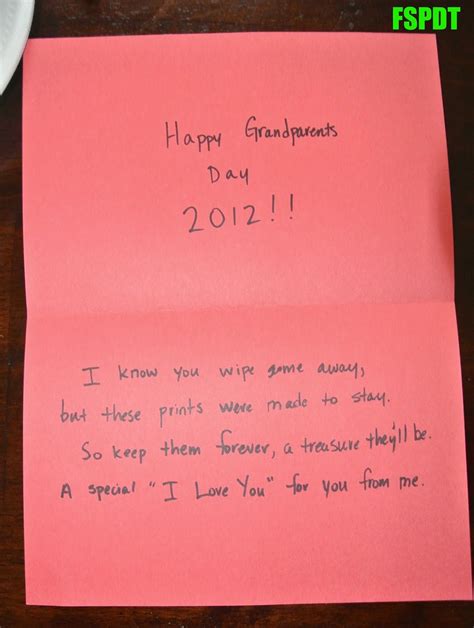 FSPDT
Happy Grandparents
Day
2012!!
I know you wipe some away,
but these prints were made to stay.
So keep them forever, a treasure they'll be.
A special "I Love You" for you from me.